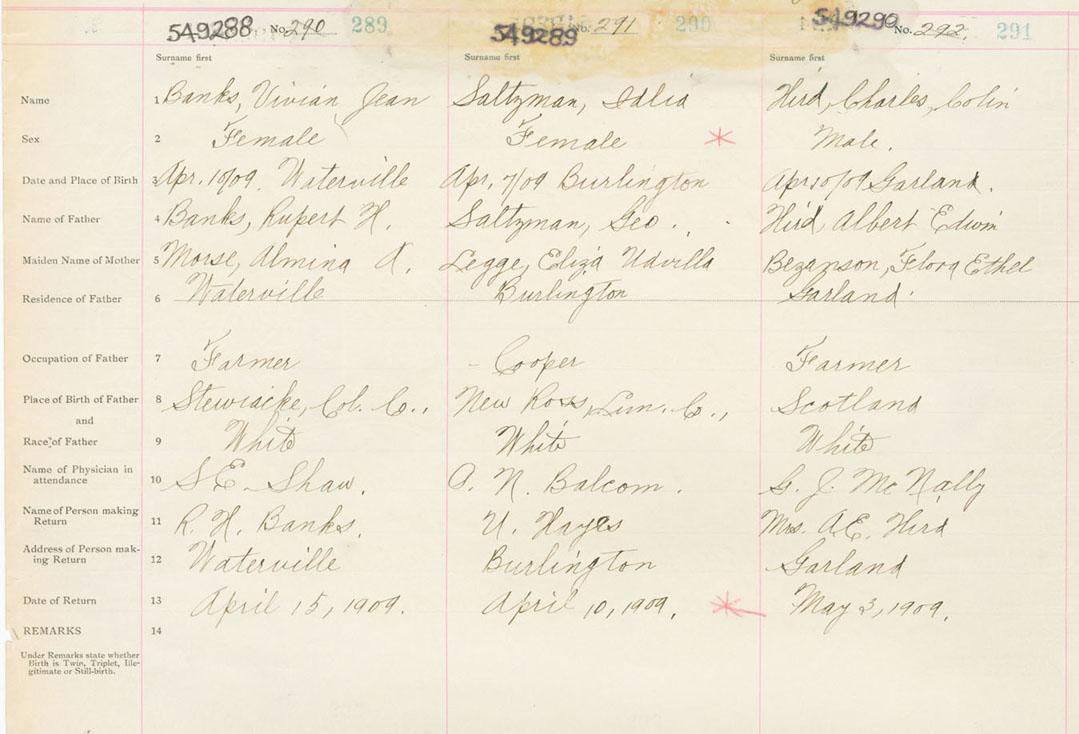 549288 No. 290 289 549289 No. 291 290 549290 No. 292. 291
Surname first Surname first Surname first
Name 1 Banks, Vivian Jean Saltzman, Idlia Hird, Charles, Colin
Sex 2 Female Female Male.
Date and Place of Birth 3 Apr. 10/09. Waterville Apr. 7/09 Burlington Apr 10/09 Garland.
Name of Father 4 Banks, Rupert H. Saltzman, Geo. Hird, Albert Edwin
Maiden Name of Mother 5 Morse, Almina A. Legge, Eliza Udvilla Bezanson, Flora Ethel
Residence of Father 6 Waterville Burlington Garland.
Occupation of Father 7 Farmer Cooper Farmer
Place of Birth of Father 8 Stewiacke, Col. Co., New Ross, Lun. Co., Scotland
and
Race of Father 9 White White White
Name of Physician in
attendance 10 S. E. Shaw. A. N. Balcom. G. J. McNally
Name of Person making
Return 11 R. H. Banks. U. Hayes Mrs. A.E. Hird
Address of Person mak-
ing Return 12 Waterville Burlington Garland
Date of Return 13 April 15, 1909. April 10, 1909. May 3, 1909.
REMARKS 14
Under Remarks state whether
Birth is Twin, Triplet, Ille-
gitimate or Still-birth.